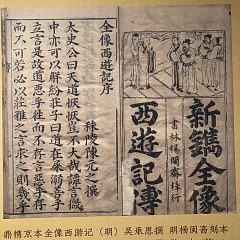 新鐫全像
書林楊閩齋梓行
西遊記傳
全像西遊記序
秣陵陳元之撰
太史公曰天道恢恢豈不大哉譚言微
中亦可以解紛莊子曰道在屎溺善乎
立言是故道惡乎往而不存言惡乎存
而不可若必以莊雅之言求之則幾乎
鼎镌京本全像西游记（明）吴承恩撰 明杨闽斋刻本